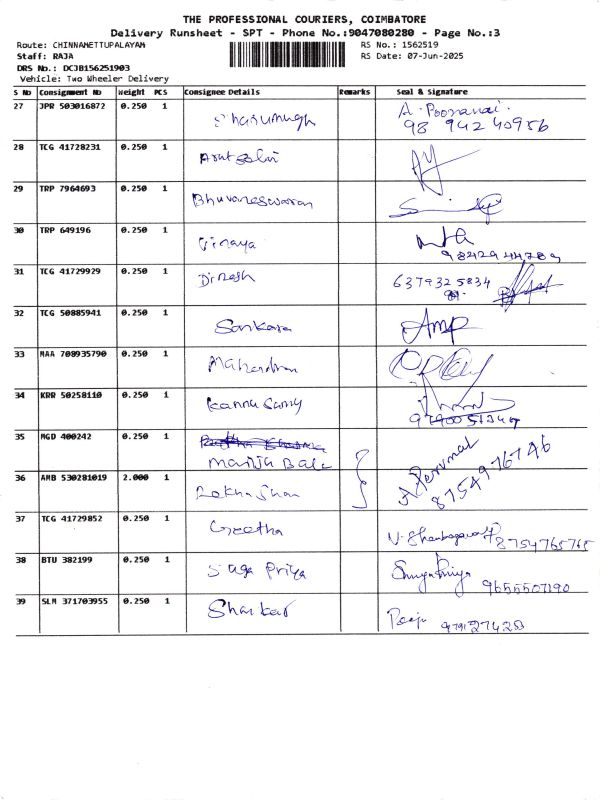 THE PROFESSIONAL COURIERS, COIMBATORE
Delivery Runsheet - SPT - Phone No.:9047080280 - Page No.:3
Route: CHINNAMETTUPALAYAM RS No.: 1562519
Staff: RAJA RS Date: 07-Jun-2025
DRS No.: DCJB156251903
Vehicle: Two Wheeler Delivery
S No Consignment No Weight PCS Consignee Details Remarks Seal & Signature
27 JPR 503016872 0.250 1 Shanmugh A. Pooranai.
98 94240956
28 TCG 41728231 0.250 1 Arutselvi
29 TRP 7964693 0.250 1 Bhuvaneswaran
30 TRP 649196 0.250 1 Vinaya
9842944789
31 TCG 41729929 0.250 1 Dinesh 6379325834
32 TCG 50885941 0.250 1 Sankara
33 MAA 708935790 0.250 1 Mahendran
34 KRR 50258110 0.250 1 Kannusamy
9790051347
35 MGD 400242 0.250 1
Manju Bala A. Perumal
36 AMB 530281019 2.000 1 8754976746
37 TCG 41729852 0.250 1 Geetha 8754765765
38 BTU 382199 0.250 1 Suga Priya Suga Priya
9655507190
39 SLM 371703955 0.250 1 Shankar